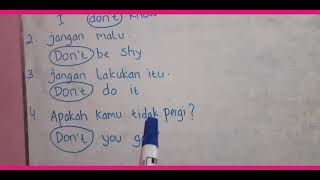 I don't know
2. jangan malu.
Don't be shy
3. jangan Lakukan itu.
Don't do it
4. Apakah kamu tidak pergi?
Don't you